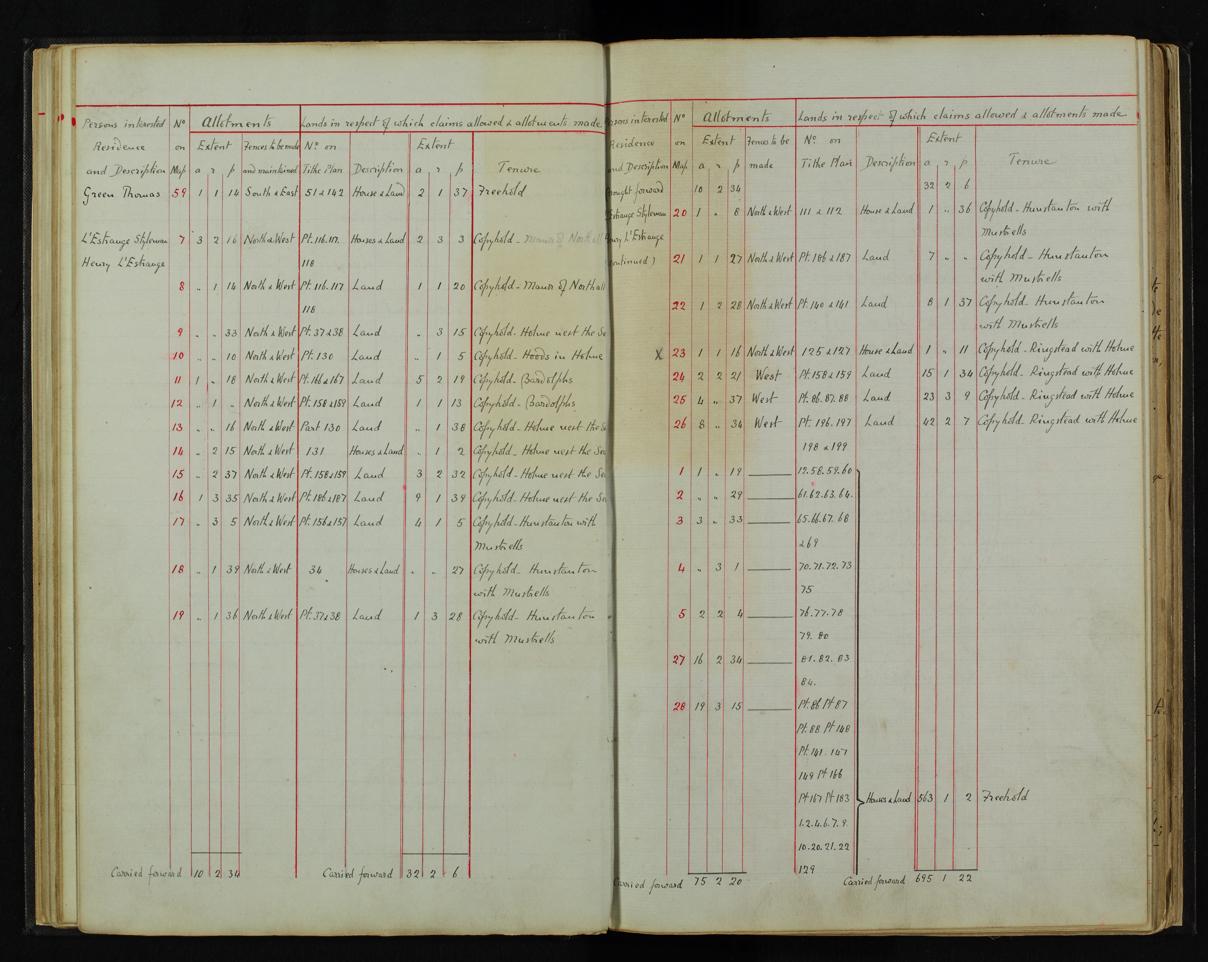 Persons interested Nº Allotments Lands in respect of which claims allowed & allotments made
Residence on Extent Fences to be made Nº on Extent
and Description Map a r p and maintained Tithe Plan Description a r p Tenure
Green Thomas 59 1 1 14 South & East 51 & 142 House & Land 2 1 37 Freehold
L'Estrange Styleman 7 3 2 16 North & West Pt. 116.117. Houses & Land 2 3 3 Copyhold -
Henry L'Estrange 118
8 " 1 14 North & West Pt. 116.117 Land 1 1 20 Copyhold - Manor of Northall
118
9 " " 33 North & West Pt. 37 & 38 Land " 3 15 Copyhold - Holme next the Se
10 " " 10 North & West Pt. 130 Land " 1 5 Copyhold - Hoods in Holme
11 1 " 18 North & West Pt. 166 & 167 Land 5 2 19 Copyhold - Bardolphs
12 " 1 " North & West Pt. 158 & 159 Land 1 1 13 Copyhold - Bardolphs
13 " " 16 North & West Part 130 Land " 1 38 Copyhold - Holme next the Se
14 " 2 15 North & West 131 Houses & Land " 1 2 Copyhold - Holme next the Sea
15 " 2 37 North & West Pt. 158 & 159 Land 3 2 32 Copyhold - Holme next the Se
16 1 3 35 North & West Pt. 186 & 187 Land 9 1 39 Copyhold - Holme next the Se
17 " 3 5 North & West Pt. 156 & 157 Land 4 1 5 Copyhold - Hunstanton with
Mustrells
18 " 1 39 North & West 34 Houses & Land " " 27 Copyhold - Hunstanton
with Mustrells
19 " 1 36 North & West Pt. 37 & 38 Land 1 3 28 Copyhold - Hunstanton
with Mustrells
Carried forward 10 2 34 Carried forward 32 2 6
rsons interested Nº Allotments Lands in respect of which claims allowed & allotments made
Residence on Extent Fences to be Nº on Extent
and Description Map a r p made Tithe Plan Description a r p Tenure
rought forward 10 2 34 32 2 6
Estrange Styleman 20 1 " 8 North & West 111 & 112 House & Land 1 " 36 Copyhold - Hunstanton with
enry L'Estrange Mustrells
ontinued) 21 1 1 27 North & West Pt. 186 & 187 Land 7 " " Copyhold - Hunstanton
with Mustrells
22 1 2 28 North & West Pt. 140 & 141 Land 8 1 37 Copyhold - Hunstanton
with Mustrells
X 23 1 1 16 North & West 125 & 127 House & Land 1 " 11 Copyhold - Ringstead with Holme
24 2 2 21 West Pt. 158 & 159 Land 15 1 34 Copyhold - Ringstead with Holme
25 4 " 37 West Pt. 86. 87. 88 Land 23 3 9 Copyhold - Ringstead with Holme
26 8 " 34 West Pt. 196. 197 Land 42 2 7 Copyhold Ringstead with Holme
198 & 199
1 1 " 19 12. 58. 59. 60
2 " " 29 61. 62. 63. 64.
3 3 " 33 65. 66. 67. 68
& 69
4 " 3 1 70. 71. 72. 73
75
5 2 2 4 76. 77. 78
79. 80
27 16 2 34 81. 82. 83
84.
28 19 3 15 Pt. 86 Pt 87
Pt. 88 Pt 140
Pt. 141. 147
149 Pt 166
Pt 167 Pt 183 Houses & Land 563 1 2 Freehold
1. 2. 4. 6. 7. 9.
10. 20. 21. 22
129
Carried forward 75 2 20 Carried forward 695 1 22